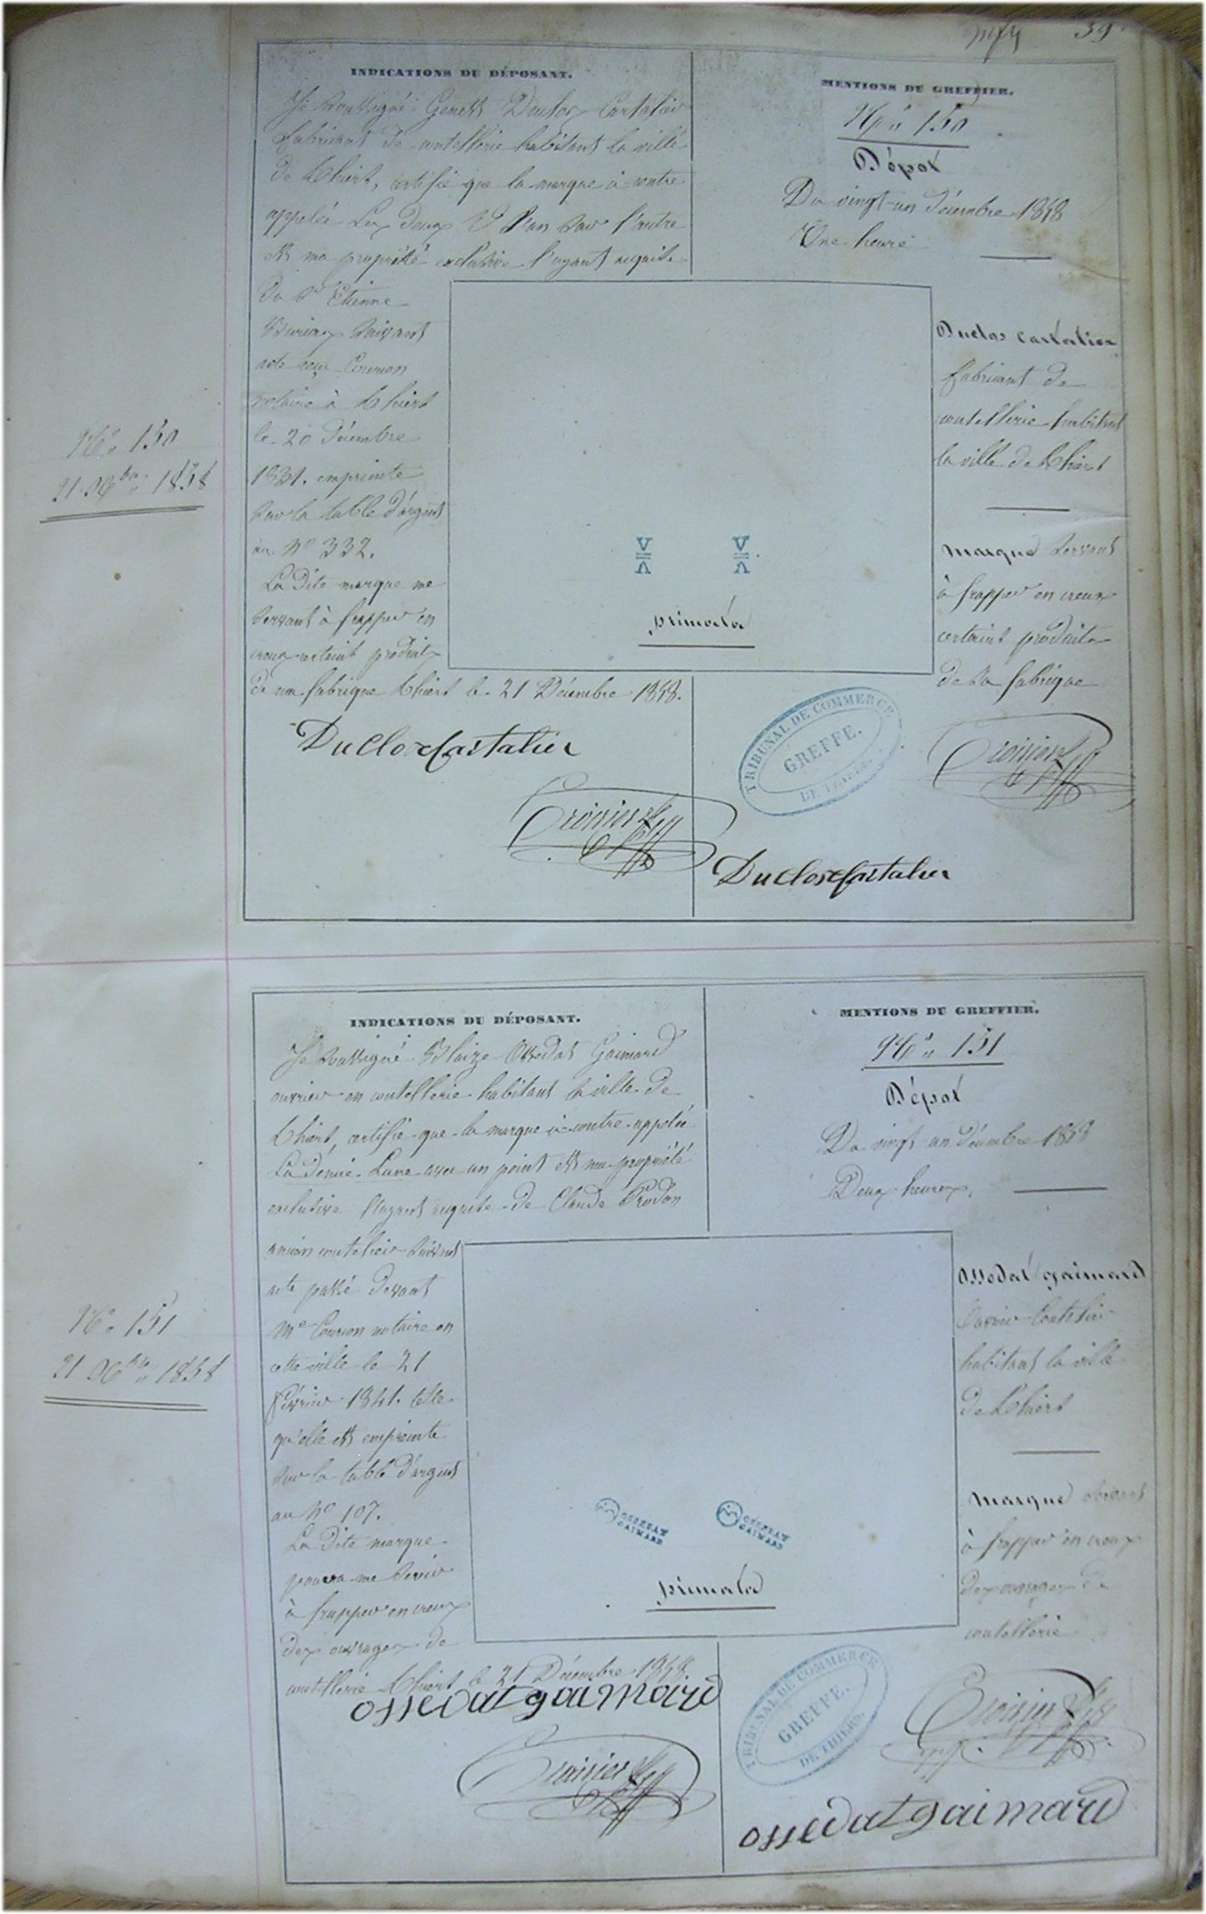 39
INDICATIONS DU DÉPOSANT.
Je soussigné Genest Duclos Castalier
fabricant de coutellerie habitant la ville
de Thiers, certifie que la marque ci contre
appelée Les deux V l'un sur l'autre
est ma propriété exclusive l'ayant acquise
du Sr Etienne
suivant
acte reçu
notaire à Thiers
le 20 Décembre
1831. empreinte
sur la table d'argent
au No 332.
La dite marque me
servant à frapper en
creux certains produits
de ma fabrique Thiers le 21 Décembre 1858.
Duclos Castalier
MENTIONS DU GREFFIER.
No 150
Dépot
Du vingt un décembre 1858
Une heure
Duclos Castalier
fabricant de
coutellerie habitant
la ville de Thiers
marque servant
à frapper en creux
certains produits
de sa fabrique
V V
V V
primata
TRIBUNAL DE COMMERCE
GREFFE.
DE THIERS
Croizier
Croizier
Duclos Castalier
No 150
21 Xbre 1858
INDICATIONS DU DÉPOSANT.
Je soussigné Blaize Ossedat Gaimard
ouvrier en coutellerie habitant la ville de
Thiers, certifie que la marque ci contre appelée
La demie Lune avec un point est ma propriété
exclusive l'ayant acquise de Claude Prodon
ancien coutelier suivant
acte passé devant
Me notaire en
cette ville le 21
février 1841. telle
qu'elle est empreinte
sur la table d'argent
au No 107.
La dite marque
pourra me servir
à frapper en creux
des ouvrages de
coutellerie Thiers le 21 Décembre 1858.
ossedat gaimard
MENTIONS DU GREFFIER.
No 151
Dépot
Du vingt un décembre 1858
Deux heures.
Ossedat Gaimard
ouvrier coutelier
habitant la ville
de Thiers
marque servant
à frapper en creux
des ouvrages de
coutellerie
OSSEDAT
GAIMARD
OSSEDAT
GAIMARD
primata
TRIBUNAL DE COMMERCE
GREFFE.
DE THIERS.
Croizier
Croizier
ossedat gaimard
No 151
21 Xbre 1858